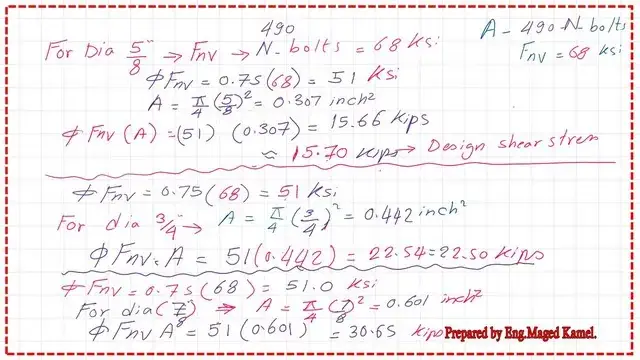 490
A - 490-N-bolts
For Dia 5/8" → Fnv → N-bolts = 68 Ksi
Fnv = 68 ksi
ϕ Fnv = 0.75(68) = 51 Ksi
A = π/4 (5/8)² = 0.307 inch²
ϕ Fnv (A) = (51) (0.307) = 15.66 Kips
≈ 15.70 Kips → Design shear stress
ϕ Fnv = 0.75 (68) = 51 Ksi
For dia 3/4" → A = π/4 (3/4)² = 0.442 inch²
ϕ Fnv. A = 51(0.442) = 22.54 = 22.50 Kips
ϕ Fnv = 0.75 (68) = 51.0 Ksi
For dia (7/8") ⇒ A = π/4 (7/8)² = 0.601 inch²
ϕ Fnv A = 51 (0.601) = 30.65 Kips
Prepared by Eng.Maged Kamel.